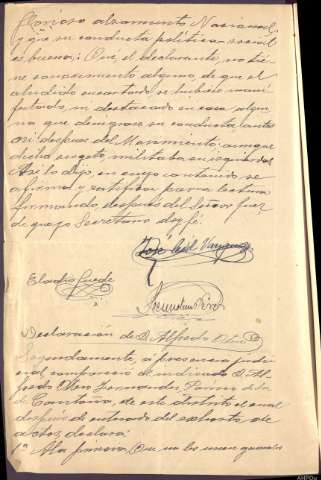 Glorioso alzamiento Nacional,
y que su conducta política social
es buena; Que el declarante no tie-
ne conocimiento alguno, de que el
aludido encartado se hubiere mani-
festado, ni destacado en cosa algu-
na que denigrase su conducta antes
ni despues del Movimiento; aunque
dicho sugeto, militaba en izquierdas.
Así lo dijo, en cuyo contenido se
afirma y ratifica previa lectura
firmando despues del Señor Juez
de que yo Secretario doy fé.
José
Eladio
Declaración de D. Alfredo
Seguidamente, a presencia judi-
cial compareció el indicado D. Al-
fredo Otero Fernandez
de Cantoña, de este distrito el cual
después de enterado del exhorto de
autos, declara:
1ª A la primera. Que no les unen generales
AHPOu